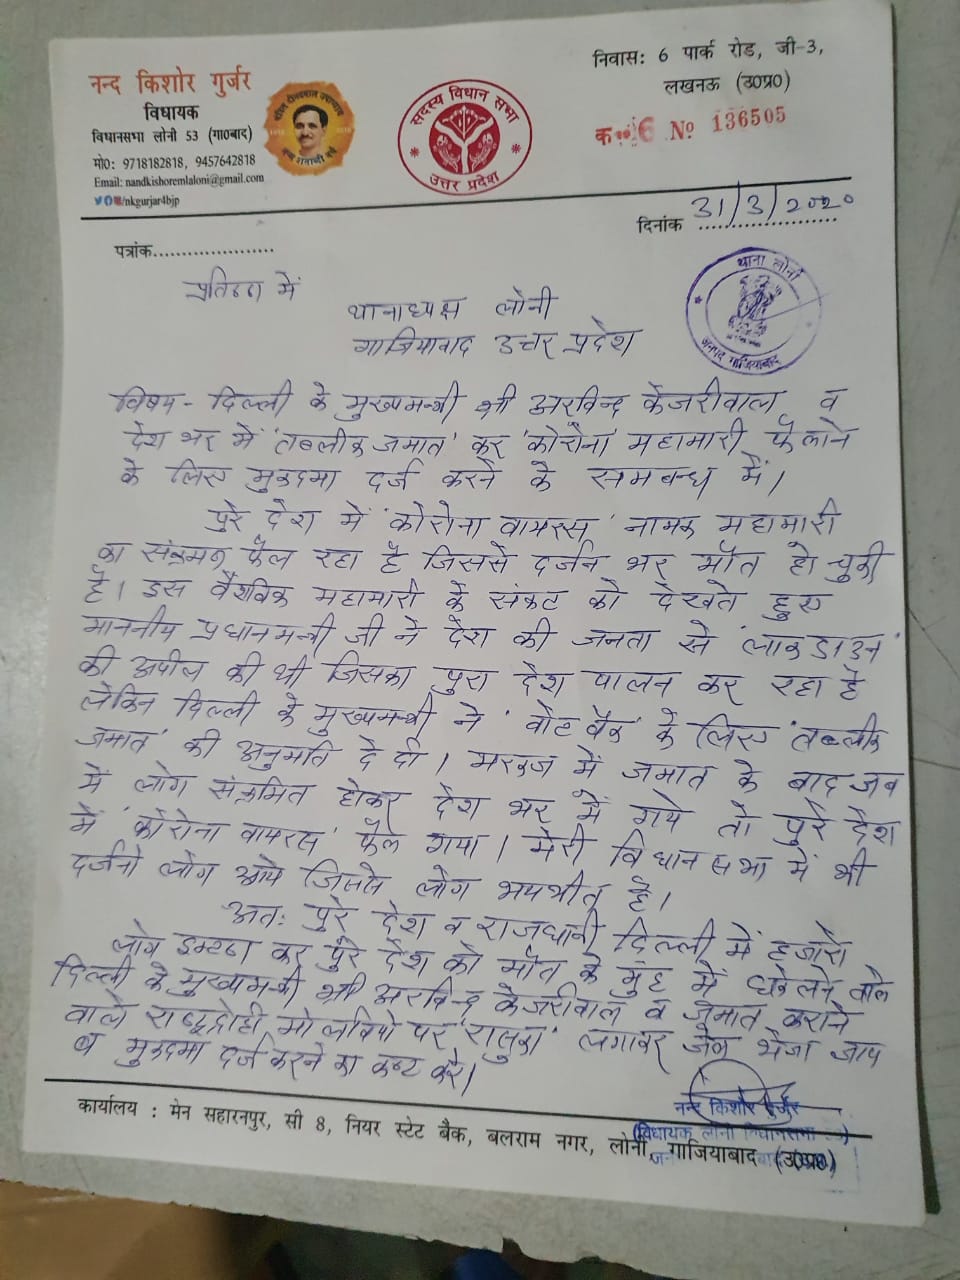 नन्द किशोर गुर्जर
विधायक
विधानसभा लोनी 53 (गा०बाद)
मो०: 9718182818, 9457642818
Email: nandkishoremlaloni@gmail.com
/nkgurjar4bjp
सदस्य विधान सभा
उत्तर प्रदेश
निवास: 6 पार्क रोड, जी-3,
लखनऊ (उ०प्र०)
6 № 136505
दिनांक 31/3/2020
पत्रांक....................
थाना लोनी
जनपद गाजियाबाद
में
थानाध्यक्ष लोनी
गाजियाबाद उत्तर प्रदेश
विषय - दिल्ली के मुख्यमन्त्री श्री अरविन्द केजरीवाल व
देश भर में 'तब्लीक जमात' कर 'कोरोना' महामारी फैलाने
के लिए मुकदमा दर्ज करने के सम्बन्ध में।
पुरे देश में 'कोरोना वायरस' नामक महामारी
का संक्रमण फैल रहा है जिससे दर्जन भर मौत हो चुकी
है। इस वैश्विक महामारी के संकट को देखते हुए
माननीय प्रधानमन्त्री जी ने देश की जनता से 'लाकडाउन'
की अपील की थी जिसका पुरा देश पालन कर रहा है
लेकिन दिल्ली के मुख्यमन्त्री ने 'वोट बैंक' के लिए 'तब्लीक
जमात' की अनुमति दे दी। मरकज में जमात के बाद जब
में लोग संक्रमित होकर देश भर में गये तो पुरे देश
में 'कोरोना वायरस' फैल गया। मेरी विधान सभा में भी
दर्जनो लोग आये जिससे लोग भयभीत है।
अतः पुरे देश व राजधानी दिल्ली में हजारो
लोग इकट्ठा कर पुरे देश को मौत के मुंह में धकेलने वाले
दिल्ली के मुख्यमन्त्री श्री अरविन्द केजरीवाल व जमात कराने
वाले राष्ट्रद्रोही मोलवियो पर 'रासुका' लगाकर जेल भेजा जाए
व मुकदमा दर्ज करने का कष्ट करे।
नन्द किशोर गुर्जर
(विधायक लोनी विधानसभा
कार्यालय : मेन सहारनपुर, सी 8, नियर स्टेट बैंक, बलराम नगर, लोनी, गाजियाबाद (उ०प्र०)